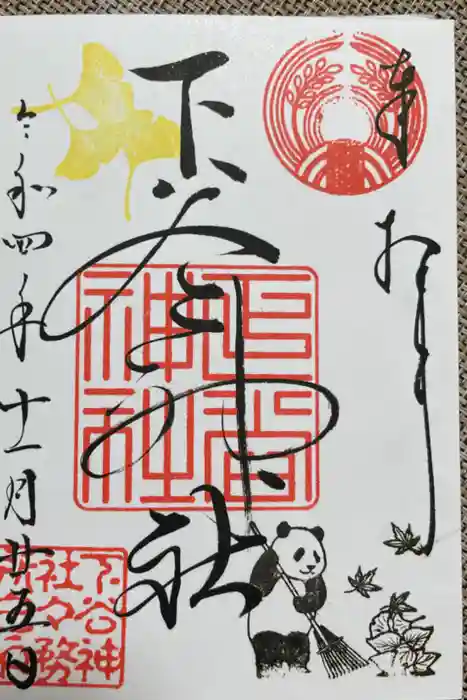 奉拝
下谷神社
令和四年十一月廿五日
下谷
神社
下谷神
社々務